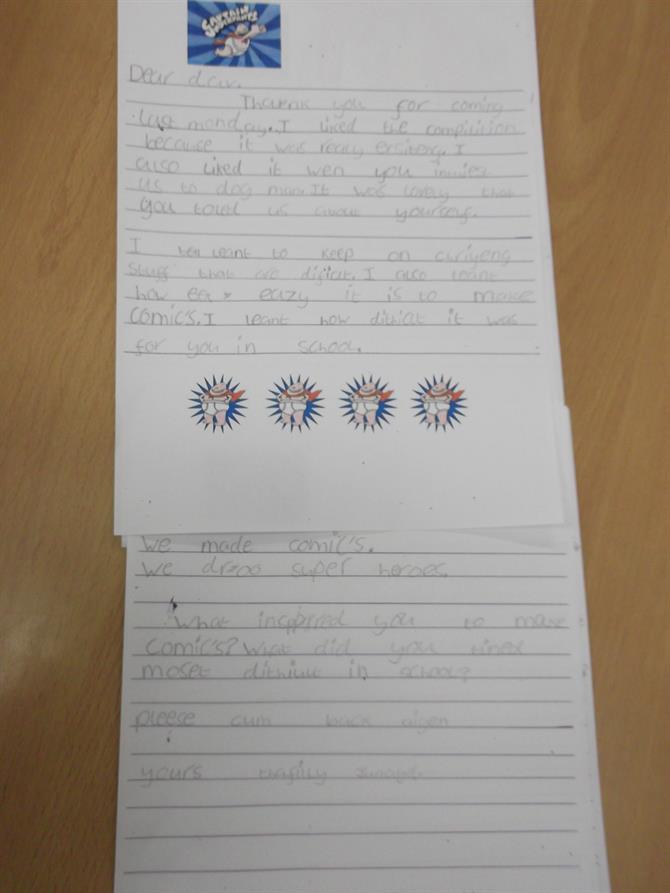 CAPTAIN UNDERPANTS
Dear dav.
Thank you for coming
last monday. I liked the compitition
because it was realy ersitery. I
also liked it wen you
us to dog man. It was lovely that
you towld us about yourself.
I leant to keep on
stuff that are dificit. I also leant
how ea eazy it is to make
comic's. I leant how dithiclt it was
for you in school.
We made comic's.
We drroo super heroes.
What you to make
comic's? What did you
moset in school?
pleese cum back aigen
yours